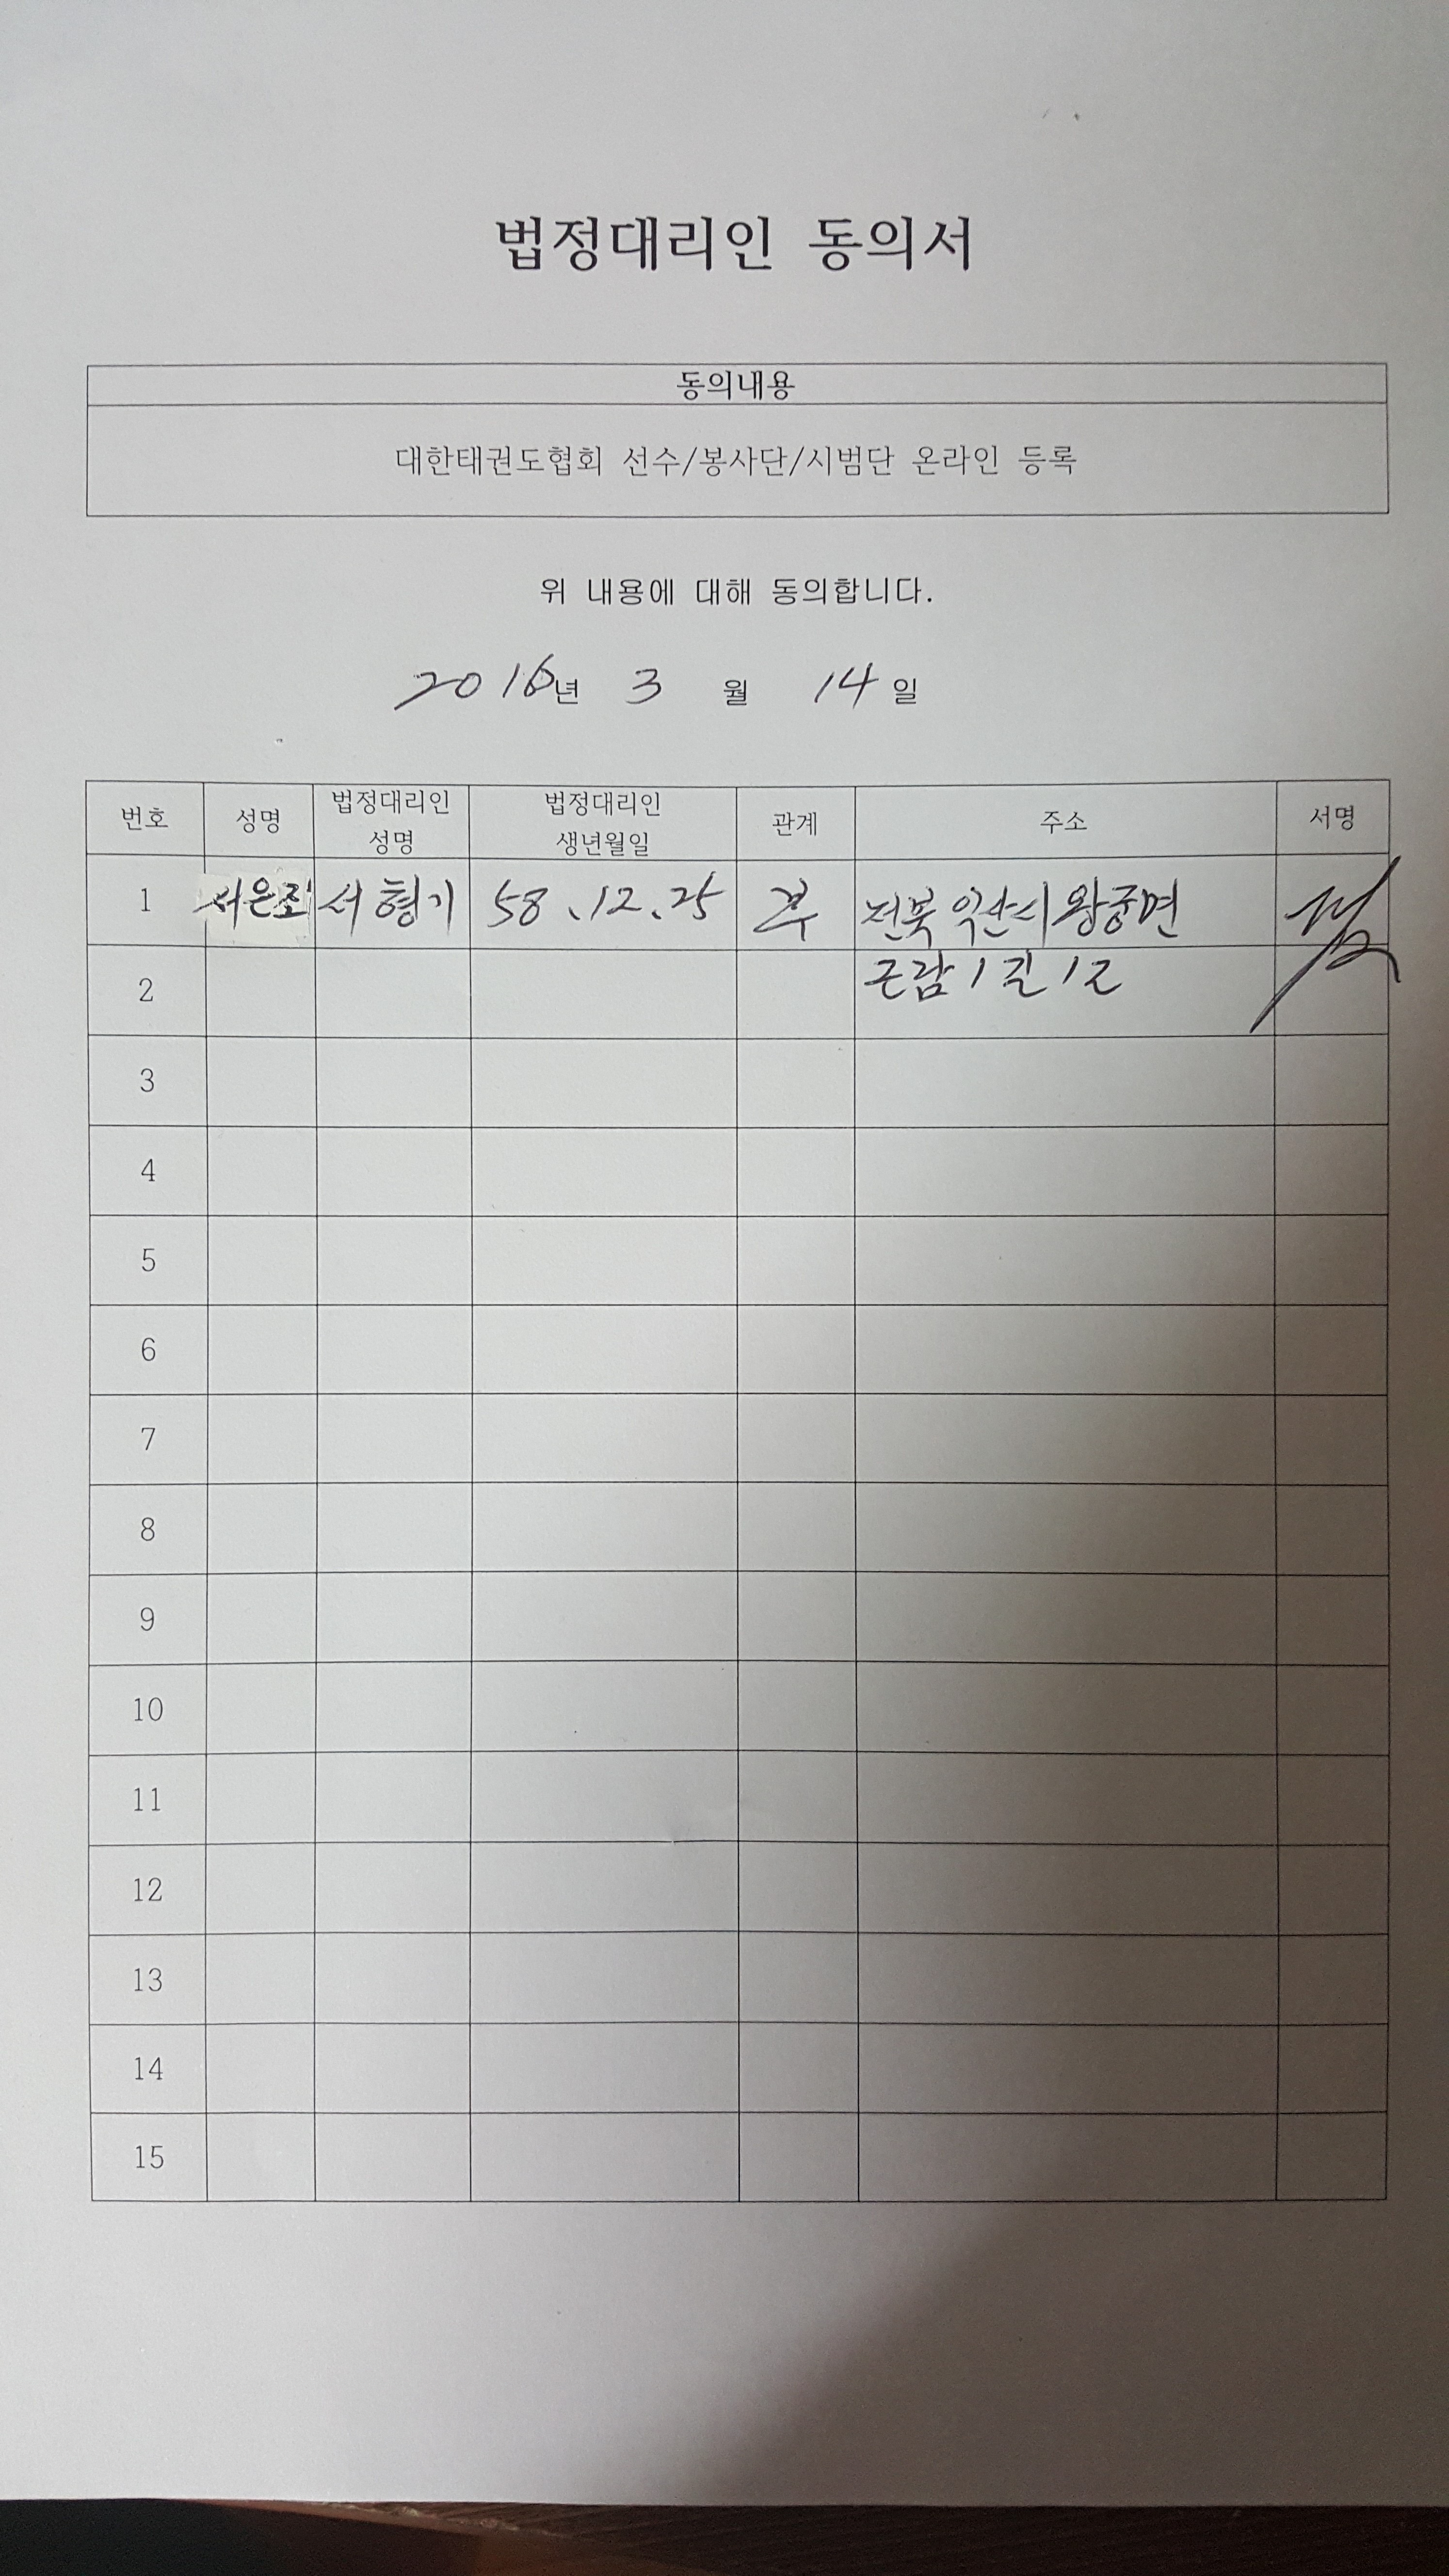 법정대리인 동의서
동의내용
대한태권도협회 선수/봉사단/시범단 온라인 등록
위 내용에 대해 동의합니다.
2016년 3 월 14 일
번호 성명 법정대리인 성명 법정대리인 생년월일 관계 주소 서명
1 서은조 서형기 58.12.25 부 전북 익산시 왕궁면
2 1길 12
3
4
5
6
7
8
9
10
11
12
13
14
15